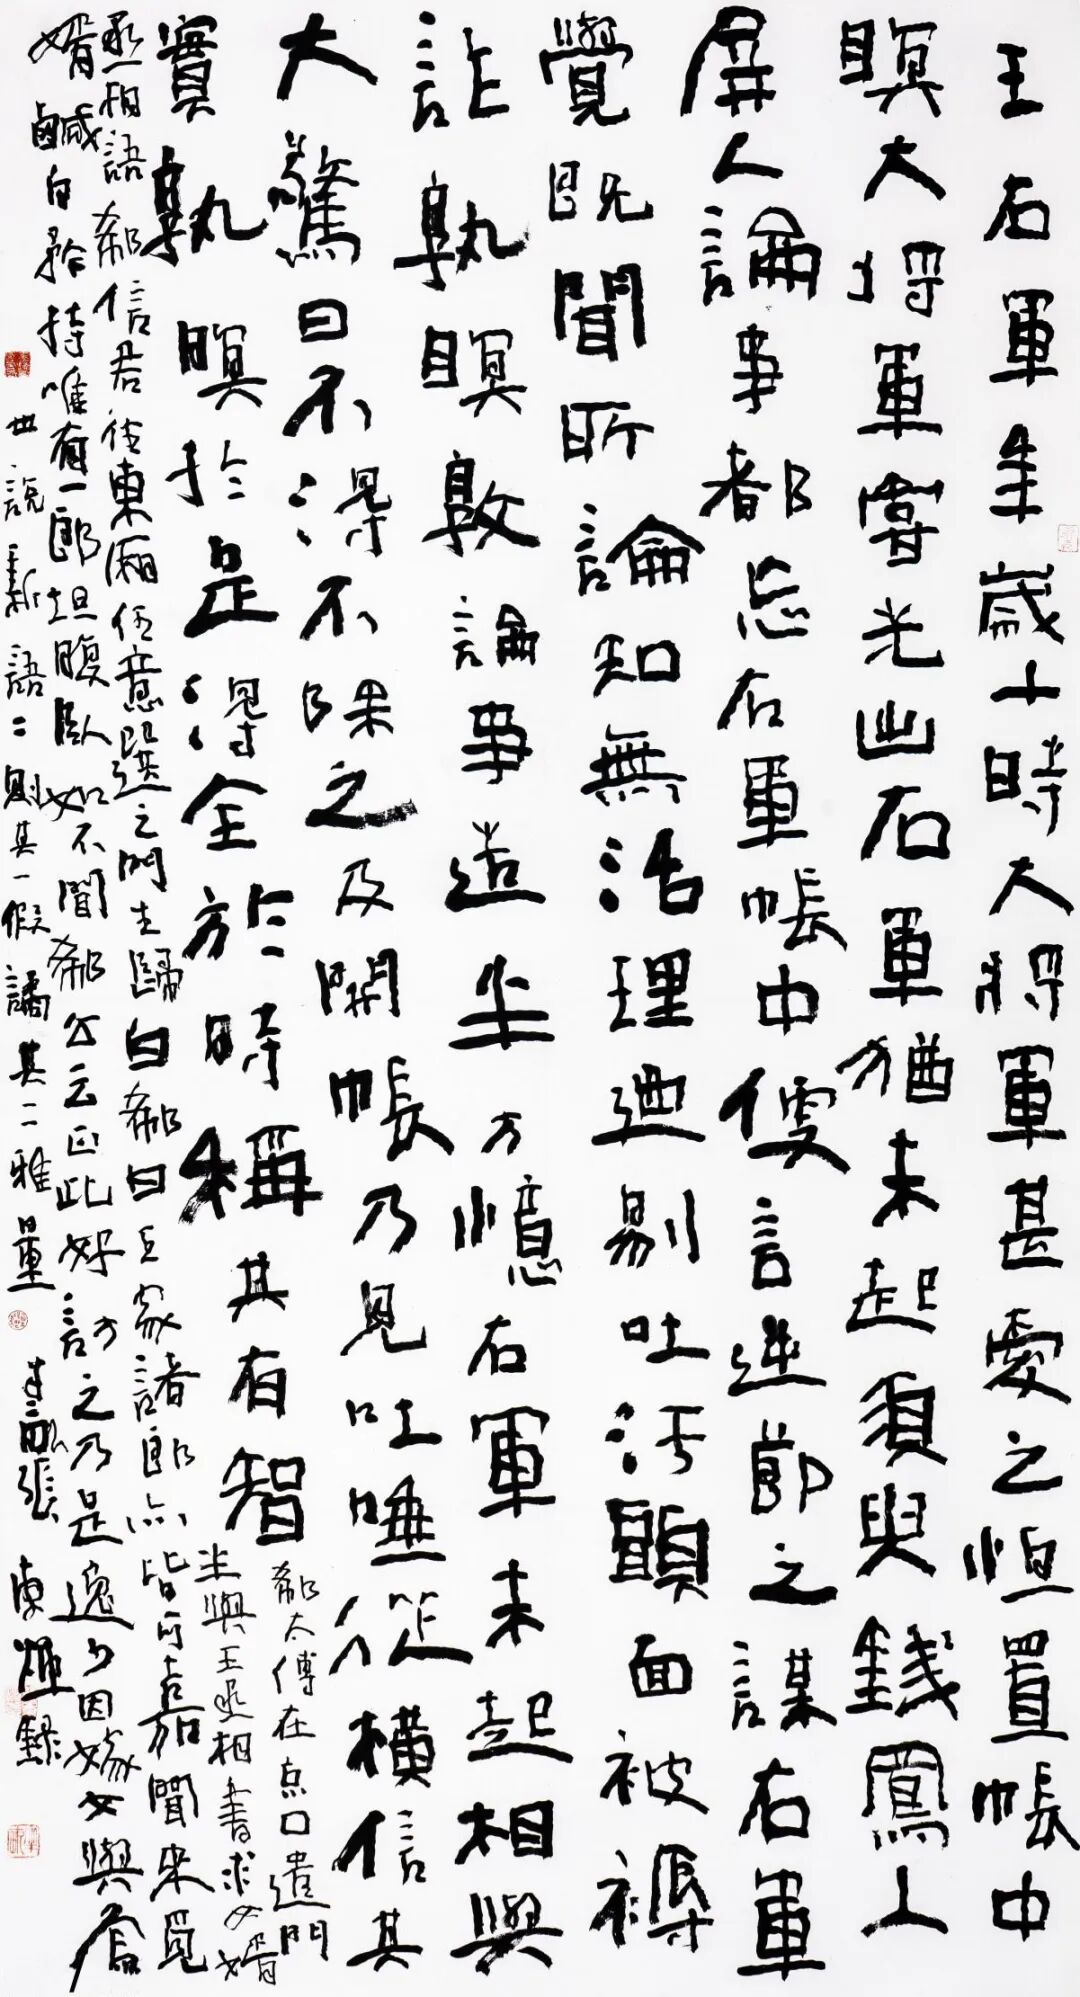 王右軍年歲十時大將軍甚愛之恒置帳中
瞑大將軍嘗先出右軍猶未起須臾錢鳳入
屏人論事都忘右軍帳中便言逆節之謀右軍
覺既聞所論知無活理迺剔吐汙頭面被褥
詐孰瞑敦論事造半方憶右軍未起相與
大驚曰不得不除之及開帳乃見吐唾從橫信其
實孰瞑於是得全於時稱其有智
郗太傅在京口遣門
生與王丞相書求女婿
丞相語郗信君往東廂任意選之門生歸白郗曰王家諸郎亦皆可嘉聞來覓
婿鹹自矜持唯有一郎坦腹臥如不聞郗公云正此好訪之乃是逸少因嫁女與焉
世說新語二則其一假譎其二雅量 張東錄